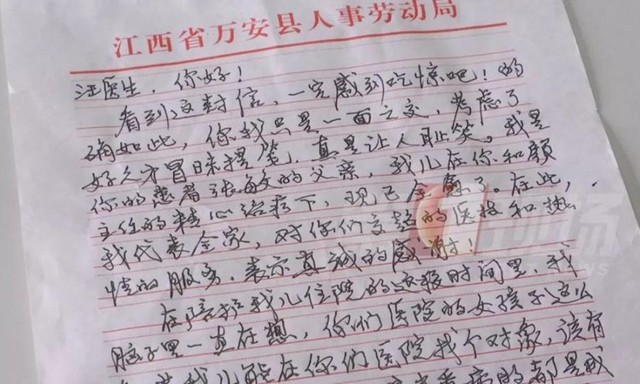 江西省万安县人事劳动局
汪医生，你好！
看到这封信，一定感到吃惊吧！的
确如此，你我只是一面之交，考虑了
好久才冒昧提笔，真是让人耻笑。我是
你的患者张敏的父亲，我儿在你和赖
主任的精心治疗下，现已全愈了。在此，
我代表全家，对你们高超的医技和热
情的服务，表示真诚的感谢！
在陪护我儿住院的这段时间里，我
脑子里一直在想，你们医院的女孩子这么
我儿能在你们医院找个对象，该有
都是成
NEWS